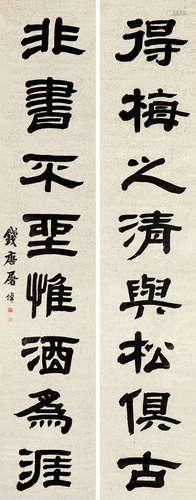 得梅之清與松俱古
非書不聖惟酒為涯
錢唐屠倬